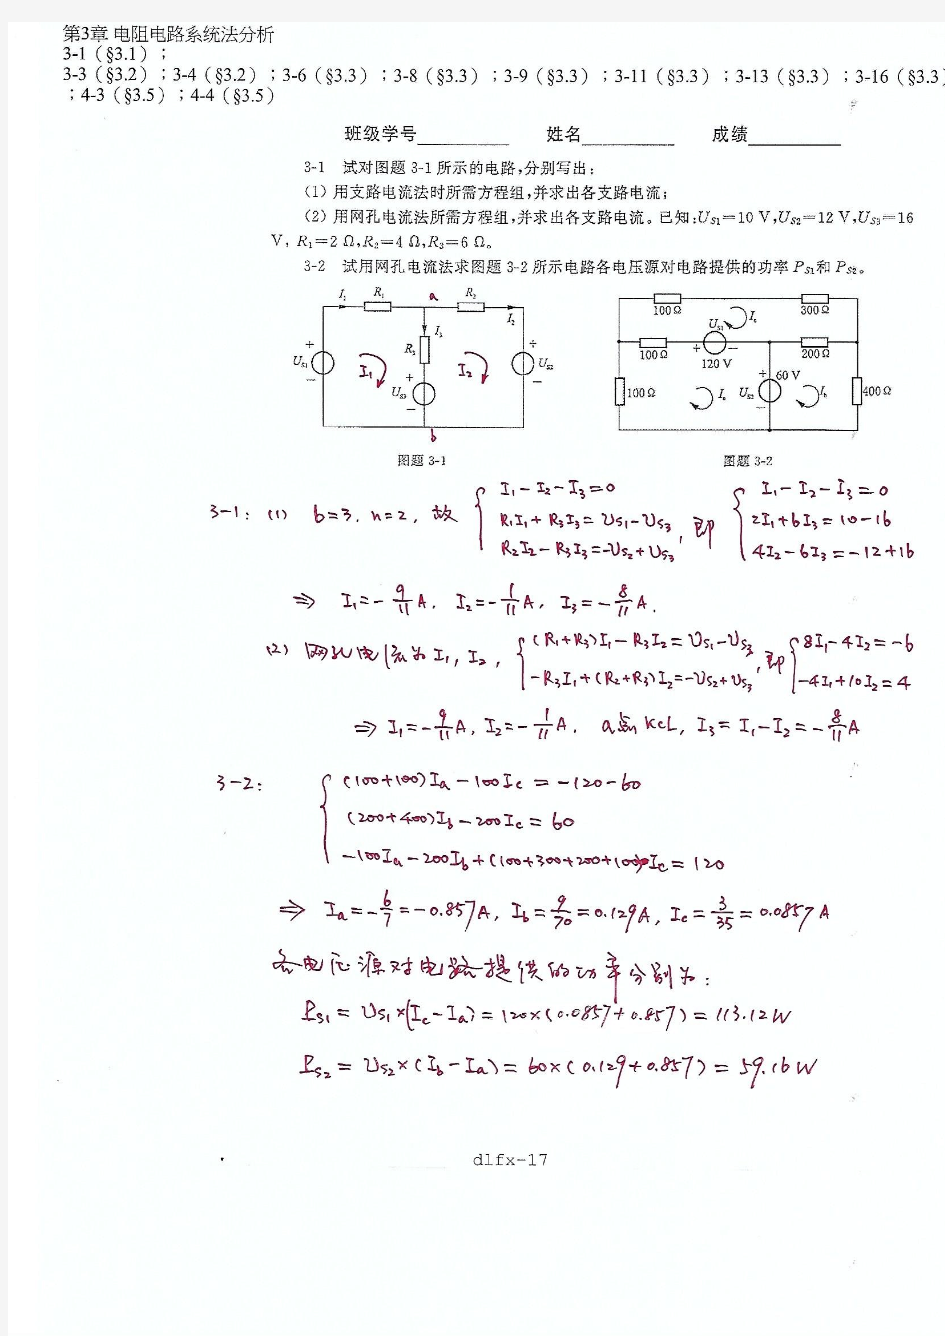 第3章 电阻电路系统法分析
3-1（§3.1）；
3-3（§3.2）；3-4（§3.2）；3-6（§3.3）；3-8（§3.3）；3-9（§3.3）；3-11（§3.3）；3-13（§3.3）；3-16（§3.3）
；4-3（§3.5）；4-4（§3.5）
班级学号 姓名 成绩
3-1 试对图题 3-1 所示的电路,分别写出:
(1) 用支路电流法时所需方程组,并求出各支路电流;
(2) 用网孔电流法所需方程组,并求出各支路电流。已知:US1=10 V,US2=12 V,US3=16
V, R1=2 Ω,R2=4 Ω,R3=6 Ω。
3-2 试用网孔电流法求图题 3-2 所示电路各电压源对电路提供的功率 PS1和 PS2。
I1 R1 a R2 I2
I3
R3
+ US1 −
I1 I2
+ US3 −
+ US2 −
b
100 Ω 300 Ω
US1 Ic
100 Ω + − 200 Ω
120 V
+ 60 V
100 Ω Ia US2 Ib 400 Ω
−
图题 3-1 图题 3-2
3-1: (1) b=3, n=2, 故 { I1-I2-I3=0 即 { I1-I2-I3=0
R1I1+R3I3=US1-US3, 2I1+6I3=10-16
R2I2-R3I3=-US2+US3 4I2-6I3=-12+16
⇒ I1=-9/11 A, I2=-1/11 A, I3=-8/11 A.
(2) 网孔电流为 I1, I2, { (R1+R3)I1-R3I2=US1-US3, 即 { 8I1-4I2=-6
-R3I1+(R2+R3)I2=-US2+US3 -4I1+10I2=4
⇒ I1=-9/11 A, I2=-1/11 A, a点 KCL, I3=I1-I2=-8/11 A
3-2: { (100+100)Ia-100Ic=-120-60
(200+400)Ib-200Ic=60
-100Ia-200Ib+(100+300+200+100)Ic=120
⇒ Ia=-6/7=-0.857A, Ib=9/70=0.129A, Ic=3/35=0.0857A
各电压源对电路提供的功率分别为:
PS1=US1×(Ic-Ia)=120×(0.0857+0.857)=113.12W
PS2=US2×(Ib-Ia)=60×(0.129+0.857)=59.16W
dlfx-17